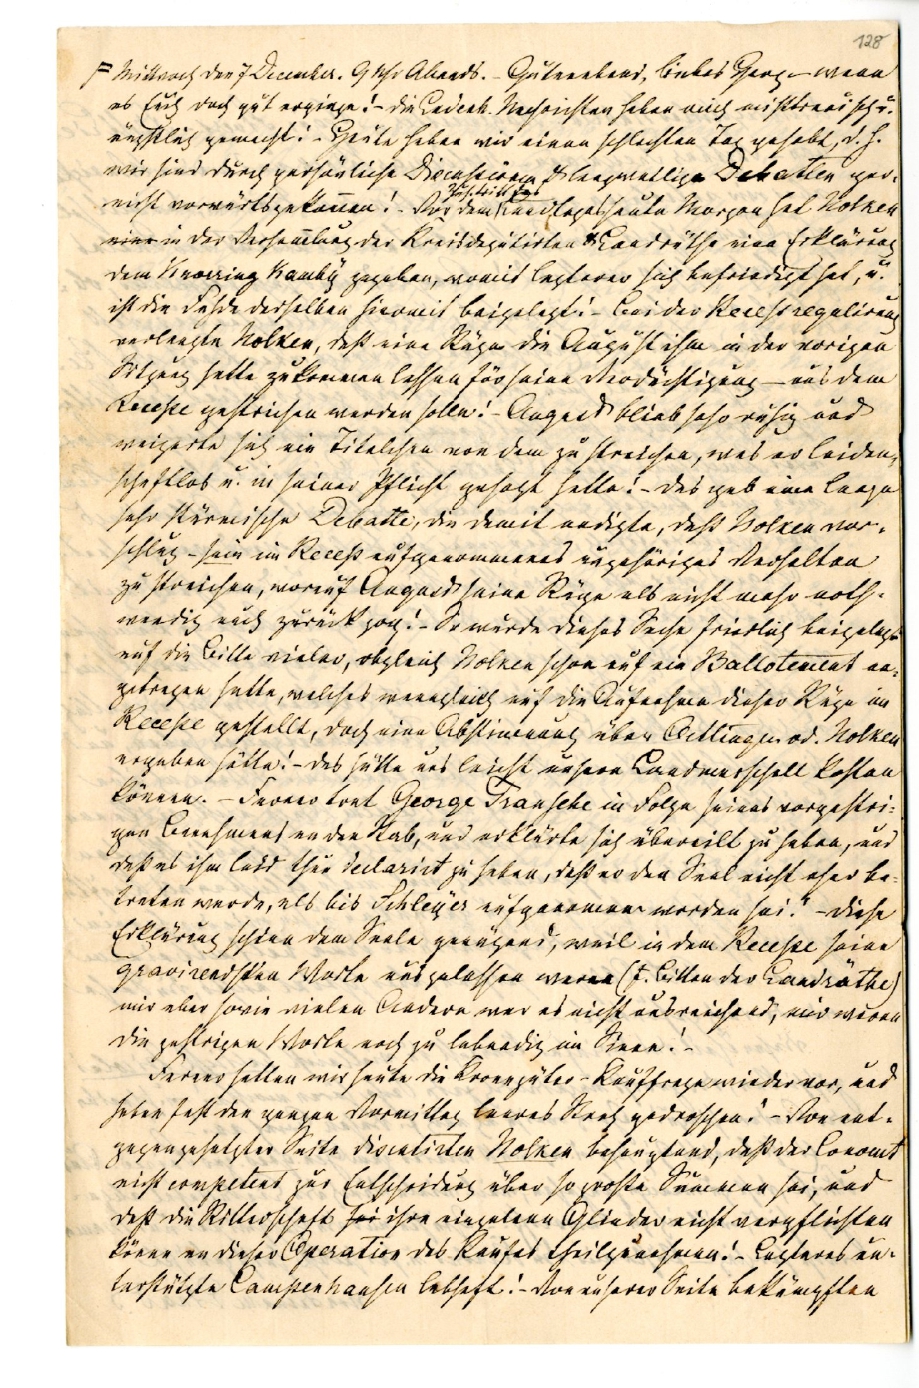 128
Mittwoch den 7 December. 9 Uhr Abends. – Guten Abend, liebes Herz – wenn
es Euch doch gut erginge! – die letzten Nachrichten haben mich mißtrauisch u.
ängstlich gemacht! – Heute haben wir einen schlechten Tag gehabt, d. h.
wir sind durch persönliche Discussionen & langweilige Debatten gar
nicht vorwärtsgekommen! – Vor dem Zusammentritt des Landtages heute Morgen hat Nolcken
in der Versammlung der Kreisdeputirten & Landräthe eine Erklärung
dem Knorring gegeben, womit letzterer sich befriedigt hat, u.
ist die Fehde derselben hiermit beigelegt! – Bei der Recessregulirung
verlangte Nolcken, daß eine Rüge die August ihm in der vorigen
Sitzung hatte zukommen lassen für seine Verdächtigung – aus dem
Recesse gestrichen werden solle! – August blieb sehr ruhig und
weigerte sich ein Titelchen von dem zu streichen, was er leiden-
schaftlos u. in seiner Pflicht gesagt hätte! – Das gab eine lange
sehr stürmische Debatte, die damit endigte, daß Nolcken vor-
schlug – sein im Recess aufgenommenes ungehöriges Verhalten
zu streichen, worauf August seine Rüge als nicht mehr noth-
wendig auch zurückzog! – So wurde diese Sache friedlich beigelegt
auf die Bitte vieler, obgleich Nolcken schon auf ein Ballotement an-
getragen hatte, welches wenngleich auf die Aufnahme dieser Rüge im
Recesse gestellt, doch eine Abstimmung über Oettingen od. Nolcken
ergeben hätte! – das hätte uns leicht unsern Landmarschall kosten
können. – Ferner trat George Transehe in Folge seines vorgestri-
gen Benehmens an den Stab, und erklärte sich übereilt zu haben, und
daß es ihm leid thue declarirt zu haben, daß er den Saal nicht eher be-
treten werde, als bis Schleyer aufgenommen worden sei! – Diese
Erklärung schien dem Saale genügend, weil in dem Recesse seine
gravirendsten Worte ausgelassen waren (f. Bitten der Landräthe)
mir aber sowie vielen Andern war es nicht ausreichend, mir waren
die gestrigen Worte noch zu lebendig im Sinne! –
Ferner hatten wir heute die Krongüter-Kauffrage wieder vor, und
haben fast den ganzen Vormittag leeres Stroh gedroschen! – Von ent-
gegengesetzter Seite discutirten Nolcken behauptend, daß der Convent
nicht competent zur Entscheidung über so große Summen sei, und
daß die Ritterschaft ihre einzelnen Glieder nicht verpflichten
könne an dieser Operation des Kaufes theilzunehmen! – Letzteres un-
terstützte Campenhausen lebhaft! – Von unserer Seite bekämpften